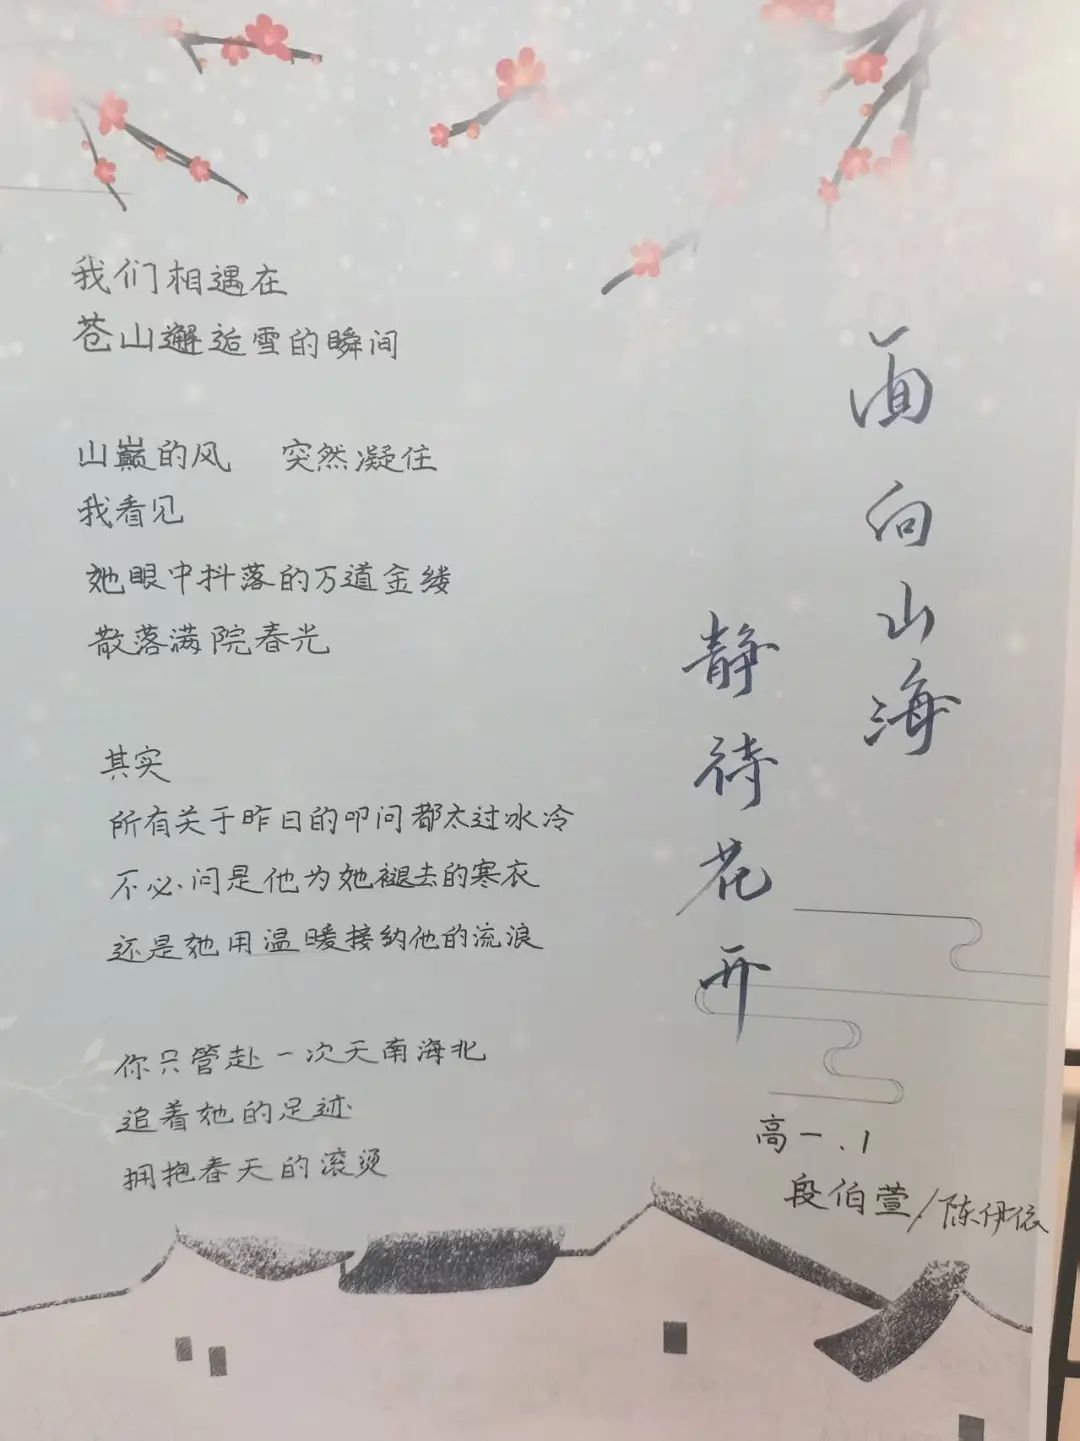 我们相遇在
苍山邂逅雪的瞬间
山巅的风 突然凝住
我看见
她眼中抖落的万道金缕
散落满院春光
其实
所有关于昨日的叩问都太过冰冷
不必问是他为她褪去的寒衣
还是她用温暖接纳他的流浪
你只管赴一次天南海北
追着她的足迹
拥抱春天的滚烫
面向山海
静待花开
高一.1
段伯萱/陈伊依